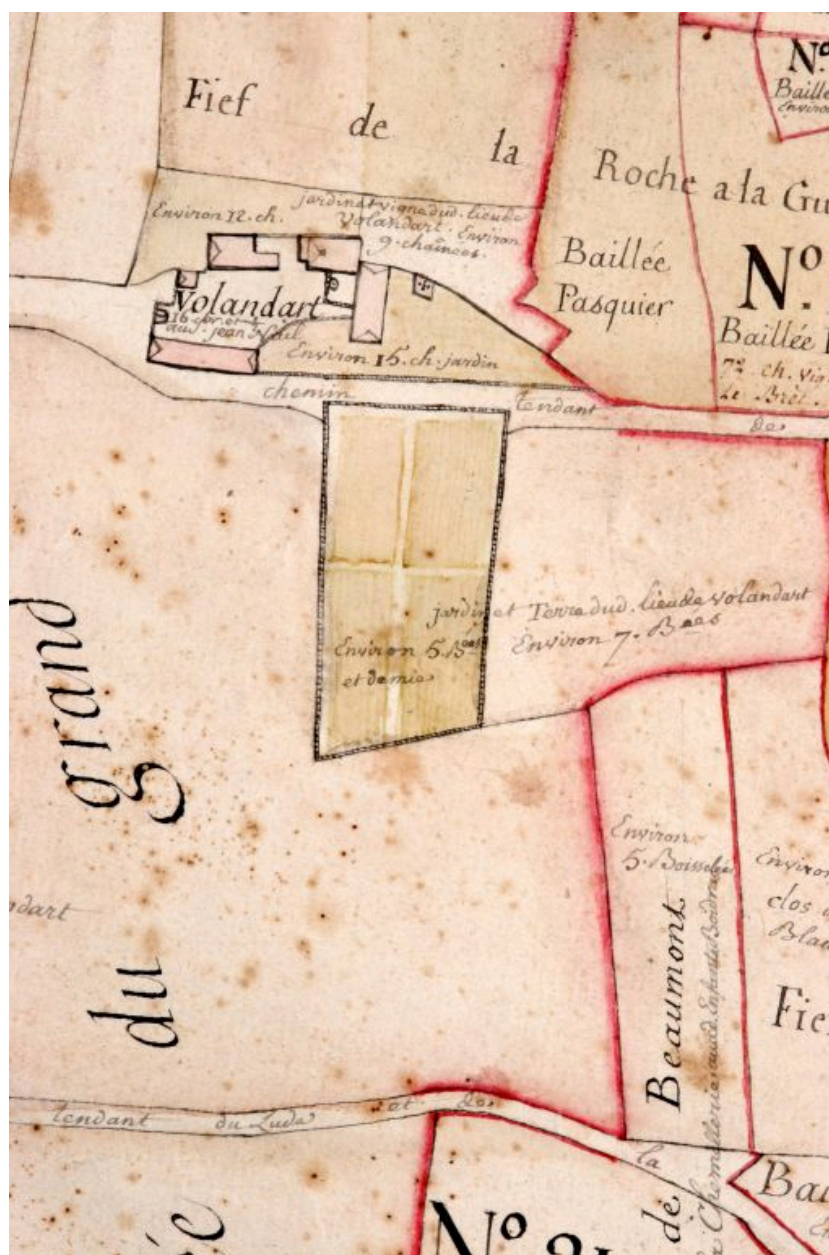 Fief de la
Roche a la Gu
N.o
Baillé
Enviro
Environ 12. ch.
jardin et vigne dud. lieu de
Volandart. Environ
9. chainées.
Baillée
Pasquier
N.o
Baillée
7.e ch. vig
Le Bret.
Volandart
aud. jean
Environ 15. ch. jardin
chemin Tendant de
jardin et Terre dud. lieu de volandart
Environ 7. B.ées
Environ 5. B.ées
et demie
grand
du
ndart
Environ
5. Boisselées
Environ
clos
Blan
Beaumont
Fie
Chemellerie aud. Enfants Boidron
tendant du Lude et de la
Bai
de
N.o 21
ée